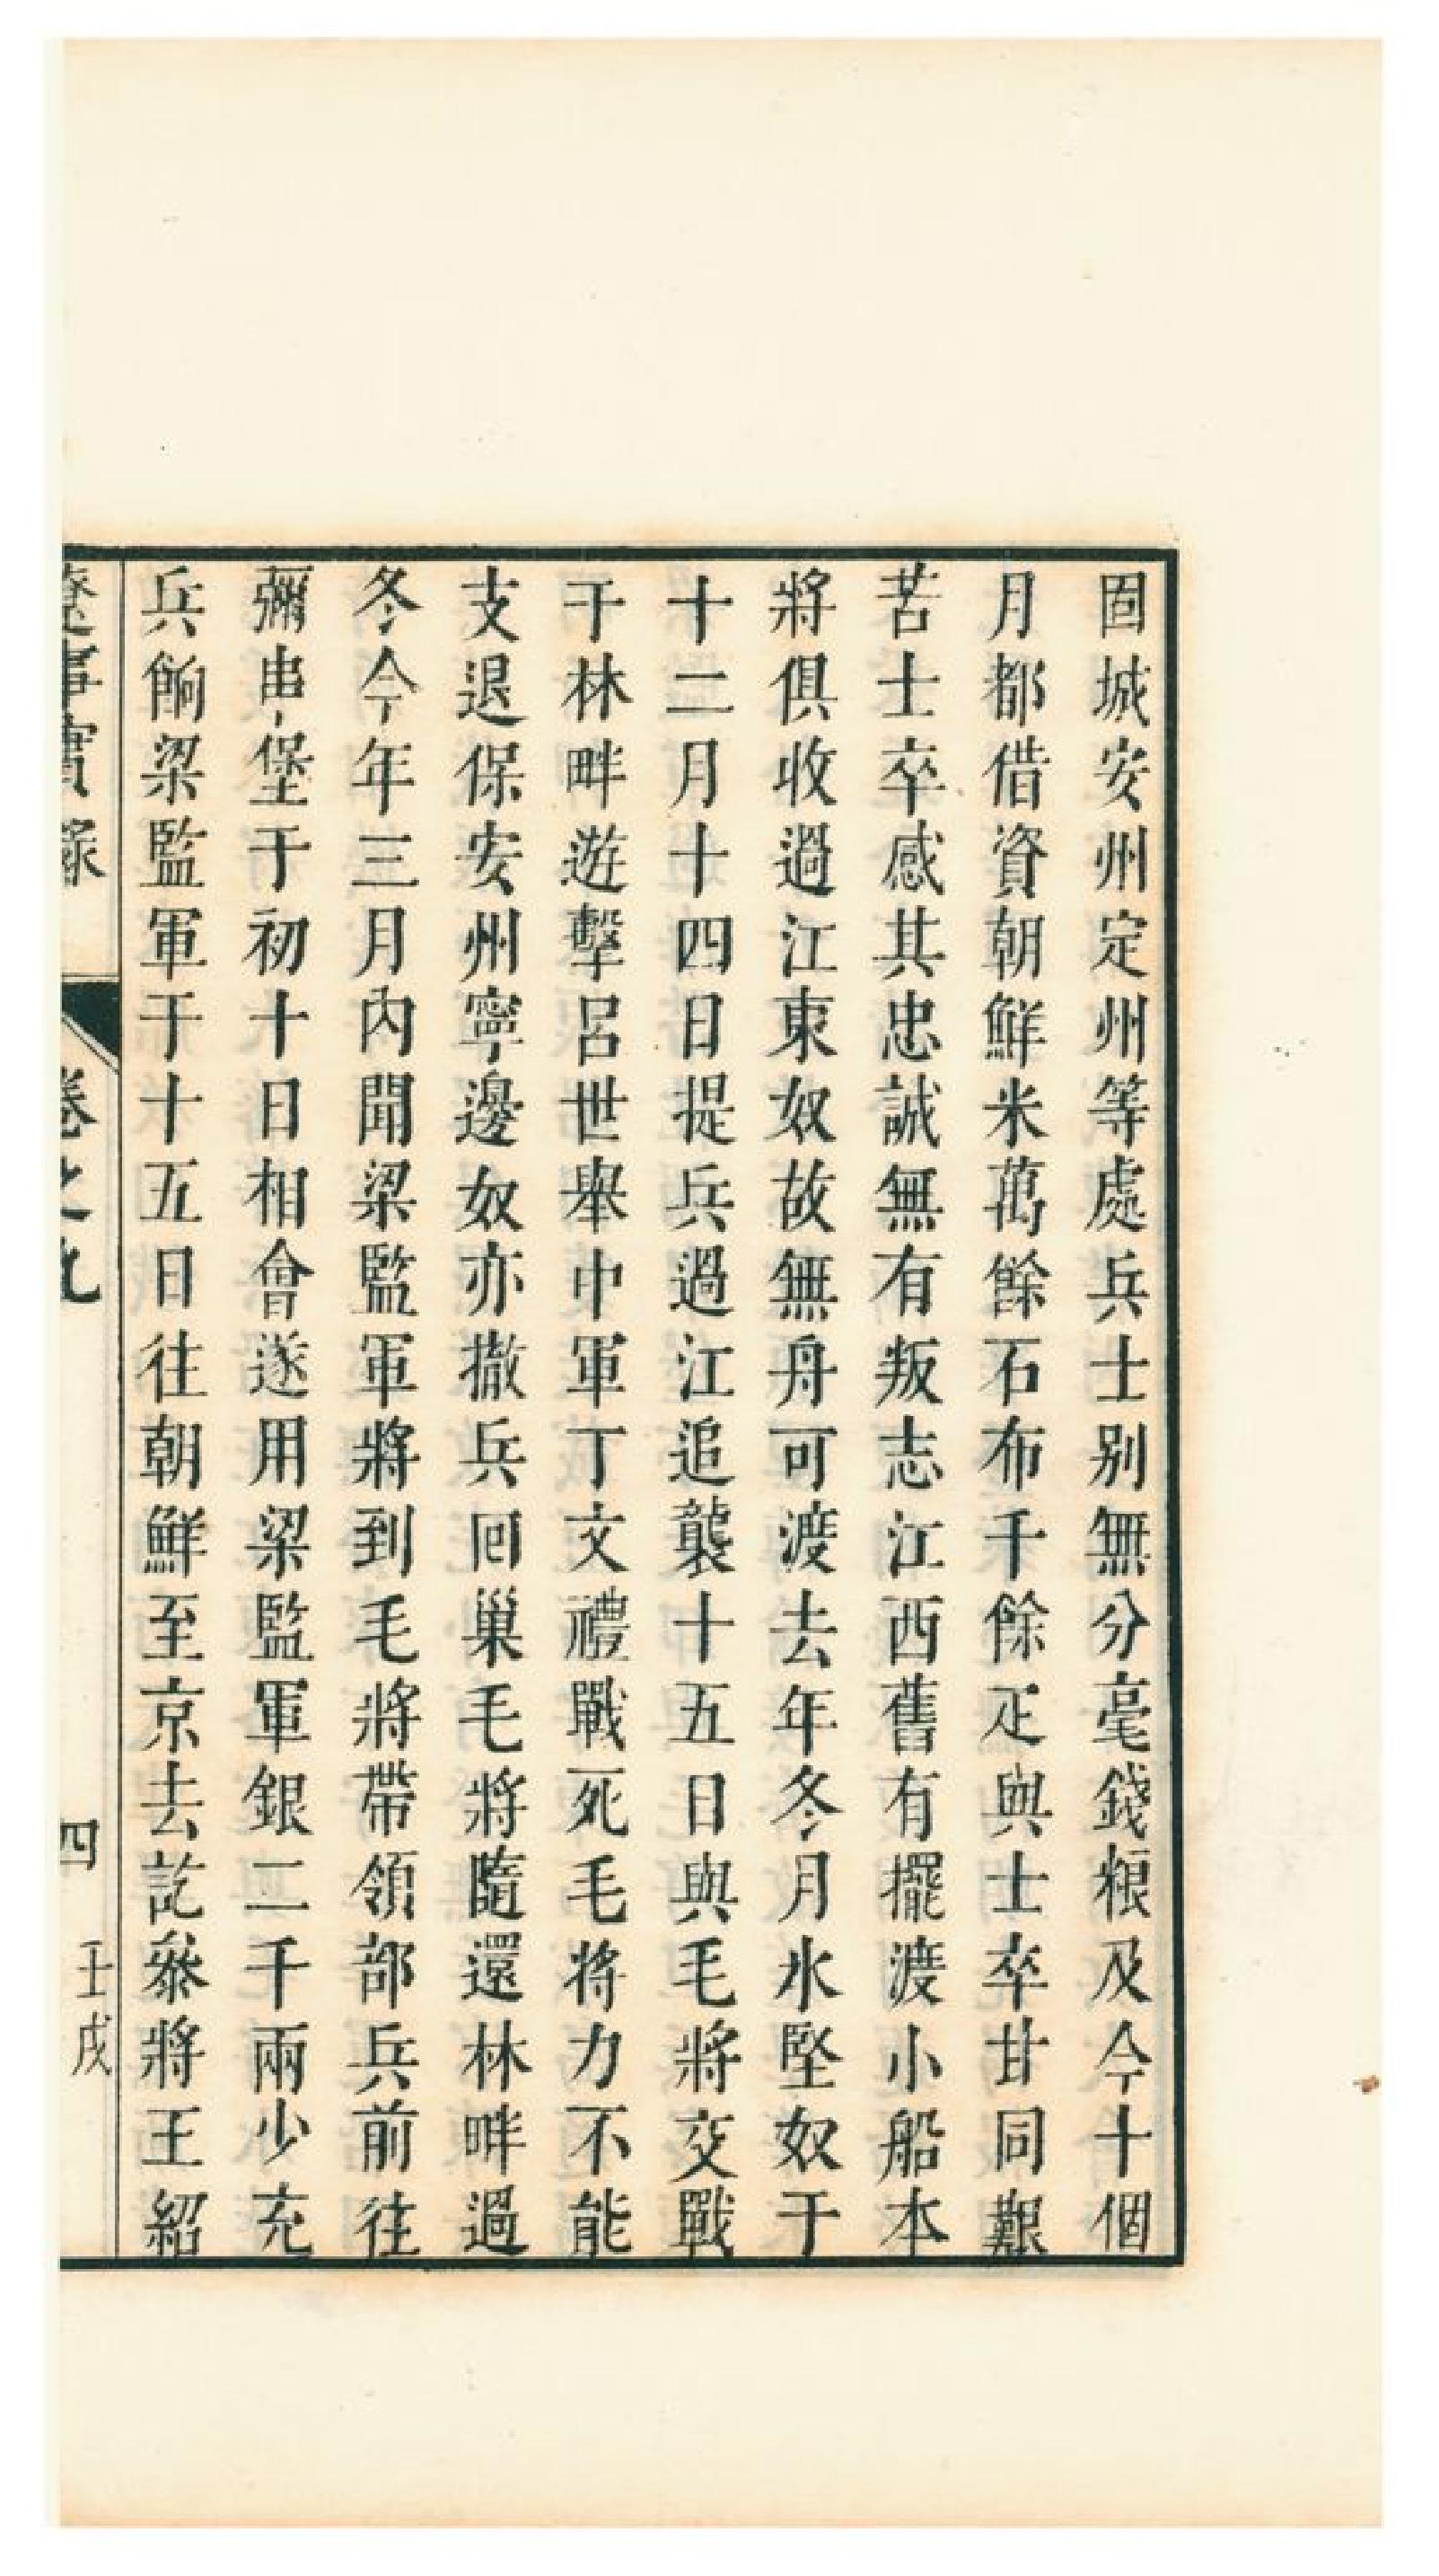 固城安州定州等處兵士别無分毫錢粮及今十個
月都借資朝鮮米萬餘石布千餘疋與士卒甘同艱
苦士卒感其忠誠無有叛志江西舊有擺渡小船本
將俱收過江東奴故無舟可渡去年冬月氷堅奴于
十二月十四日提兵過江追襲十五日與毛將交戰
于林畔遊擊呂世舉中軍丁文禮戰死毛將力不能
支退保安州寧邊奴亦撤兵囘巢毛將隨還林畔過
冬今年三月內聞梁監軍將到毛將帶領部兵前往
彌串堡于初十日相會遂用梁監軍銀二千兩少充
兵餉梁監軍于十五日往朝鮮至京去訖叅將王紹
遼事實錄 卷之九 四 壬戌